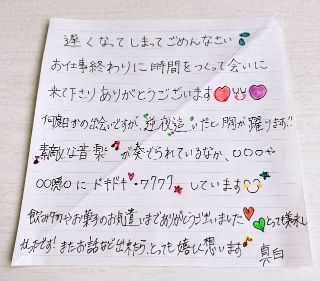 遅くなってしまってごめんなさい
お仕事終わりに時間をつくって会いに
来て下さりありがとうございます
何度目かの出会いですが、逢いたいと胸が躍ります!!
素敵な音楽が奏でられているなか、○○○や
○○○○にドキドキ・ワクワクしています
飲み物やお菓子のお気遣いまでありがとうございましたとっても美味し
かったです!またお話など出来たら、とっても嬉しく想います
真白